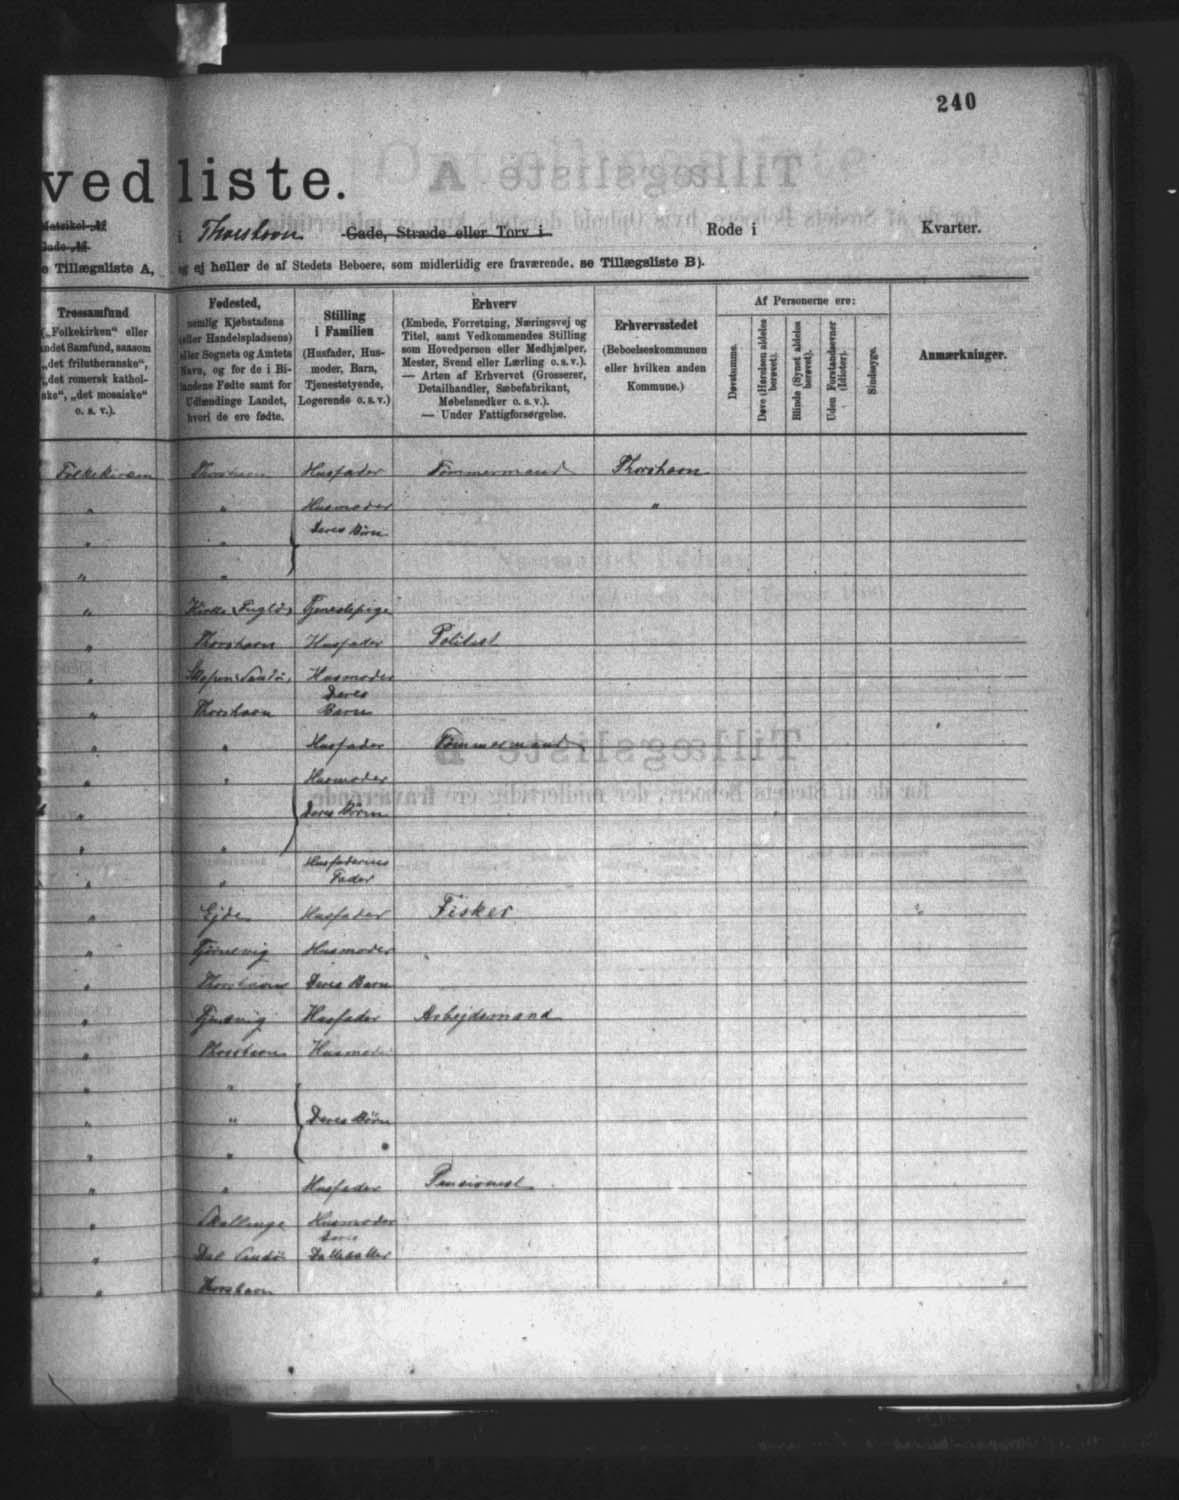 240
ved liste.
Matrikel-№
Gade-№
i Thorshavn Gade, Stræde eller Torv i Rode i Kvarter.
e Tillægsliste A, og ej heller de af Stedets Beboere, som midlertidig ere fraværende, se Tillægsliste B).
Trossamfund
(„Folkekirken“ eller
andet Samfund, saasom
„det frilutheranske“,
„det romersk kathol-
ske“, „det mosaiske“
o. s. v.).
Fødested,
nemlig Kjøbstadens
(eller Handelspladsens)
eller Sognets og Amtets
Navn, og for de i Bi-
landene Fødte samt for
Udlændinge Landet,
hvori de ere fødte.
Stilling
i Familien
(Husfader, Hus-
moder, Barn,
Tjenestetyende,
Logerende o. s. v.)
Erhverv
(Embede, Forretning, Næringsvej og
Titel, samt Vedkommendes Stilling
som Hovedperson eller Medhjælper,
Mester, Svend eller Lærling o. s. v.).
— Arten af Erhvervet (Grosserer,
Detailhandler, Sæbefabrikant,
Møbelsnedker o. s. v.).
— Under Fattigforsørgelse.
Erhvervsstedet
(Beboelseskommunen
eller hvilken anden
Kommune.)
Af Personerne ere:
Døvstumme.
Døve (Hørelsen aldeles
berøvet).
Blinde (Synet aldeles
berøvet).
Uden Forstandsevner
(Idioter).
Sindssyge.
Anmærkninger.
Folkekirken Thorshavn Husfader Tømmermand Thorshavn
" " Husmoder "
" " Deres Børn
" "
" Fuglø, Tjenestepige
" Thorshavn Husfader Politist
" Skopen Sandø, Husmoder
" Thorshavn Deres Barn
" " Husfader Tømmermand
" " Husmoder
" Deres Børn
" "
" " Husfaderens Fader
" Ejde Husfader Fisker
" Tjørnevig Husmoder
" Thorshavn Deres Barn
" Tjørnevig Husfader Arbejdsmand
" Thorshavn Husmoder
" "
" " Deres Børn
" "
" " Husfader Pensionist
" Skællinge Husmoder
" Dal Sandø Deres Datter
" Thorshavn